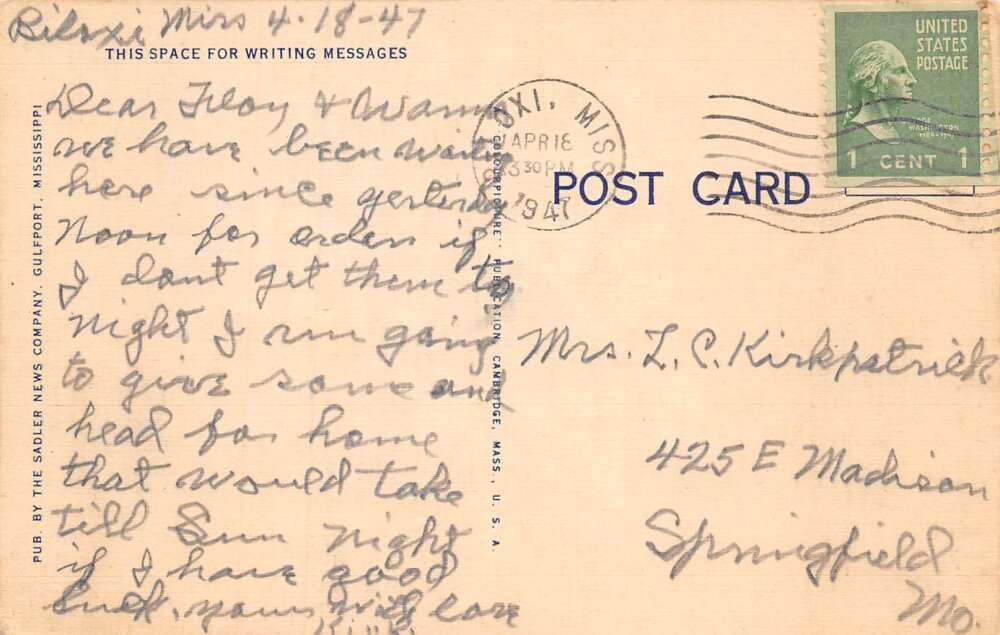 Biloxi Miss 4-18-47
THIS SPACE FOR WRITING MESSAGES
Dear Floy &
we have been waiting
here since yesterday
Noon for orders if
I dont get them to
Night I am going
to give some and
head for home
that would take
till Sun Night
if I have good
luck, yours with love
PUB. BY THE SADLER NEWS COMPANY, GULFPORT, MISSISSIPPI
COLOURPICTURE" PUBLICATION, CAMBRIDGE, MASS., U. S. A.
OXI, MISS
APR 18
3 30 PM
1947
UNITED
STATES
POSTAGE
WASHINGTON
1 CENT 1
POST CARD
Mrs. L. C. Kirkpatrick
425 E Madison
Springfield
Mo.